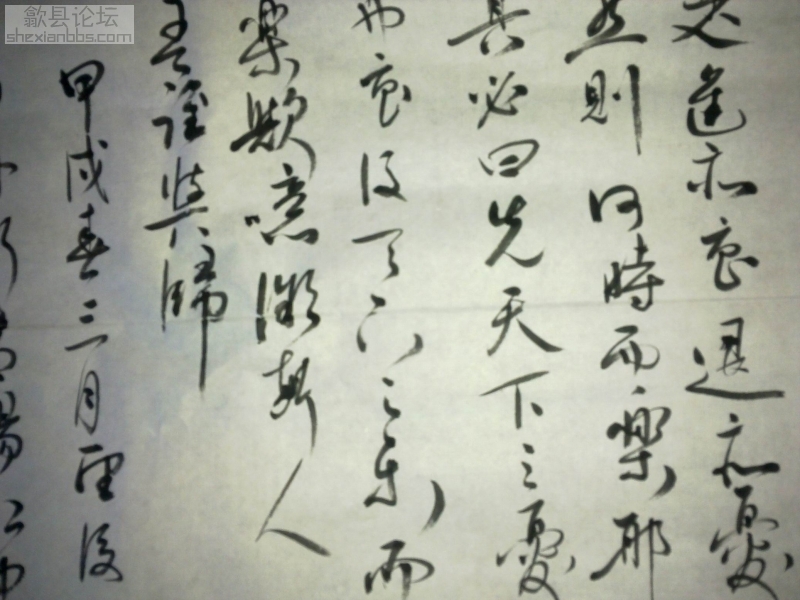 歙县论坛
shexianbbs.com
是進亦憂退亦憂
然則何時而樂耶
其必曰先天下之憂
而憂後天下之樂而
樂歟噫微斯人
吾誰與歸
甲戌春三月望後